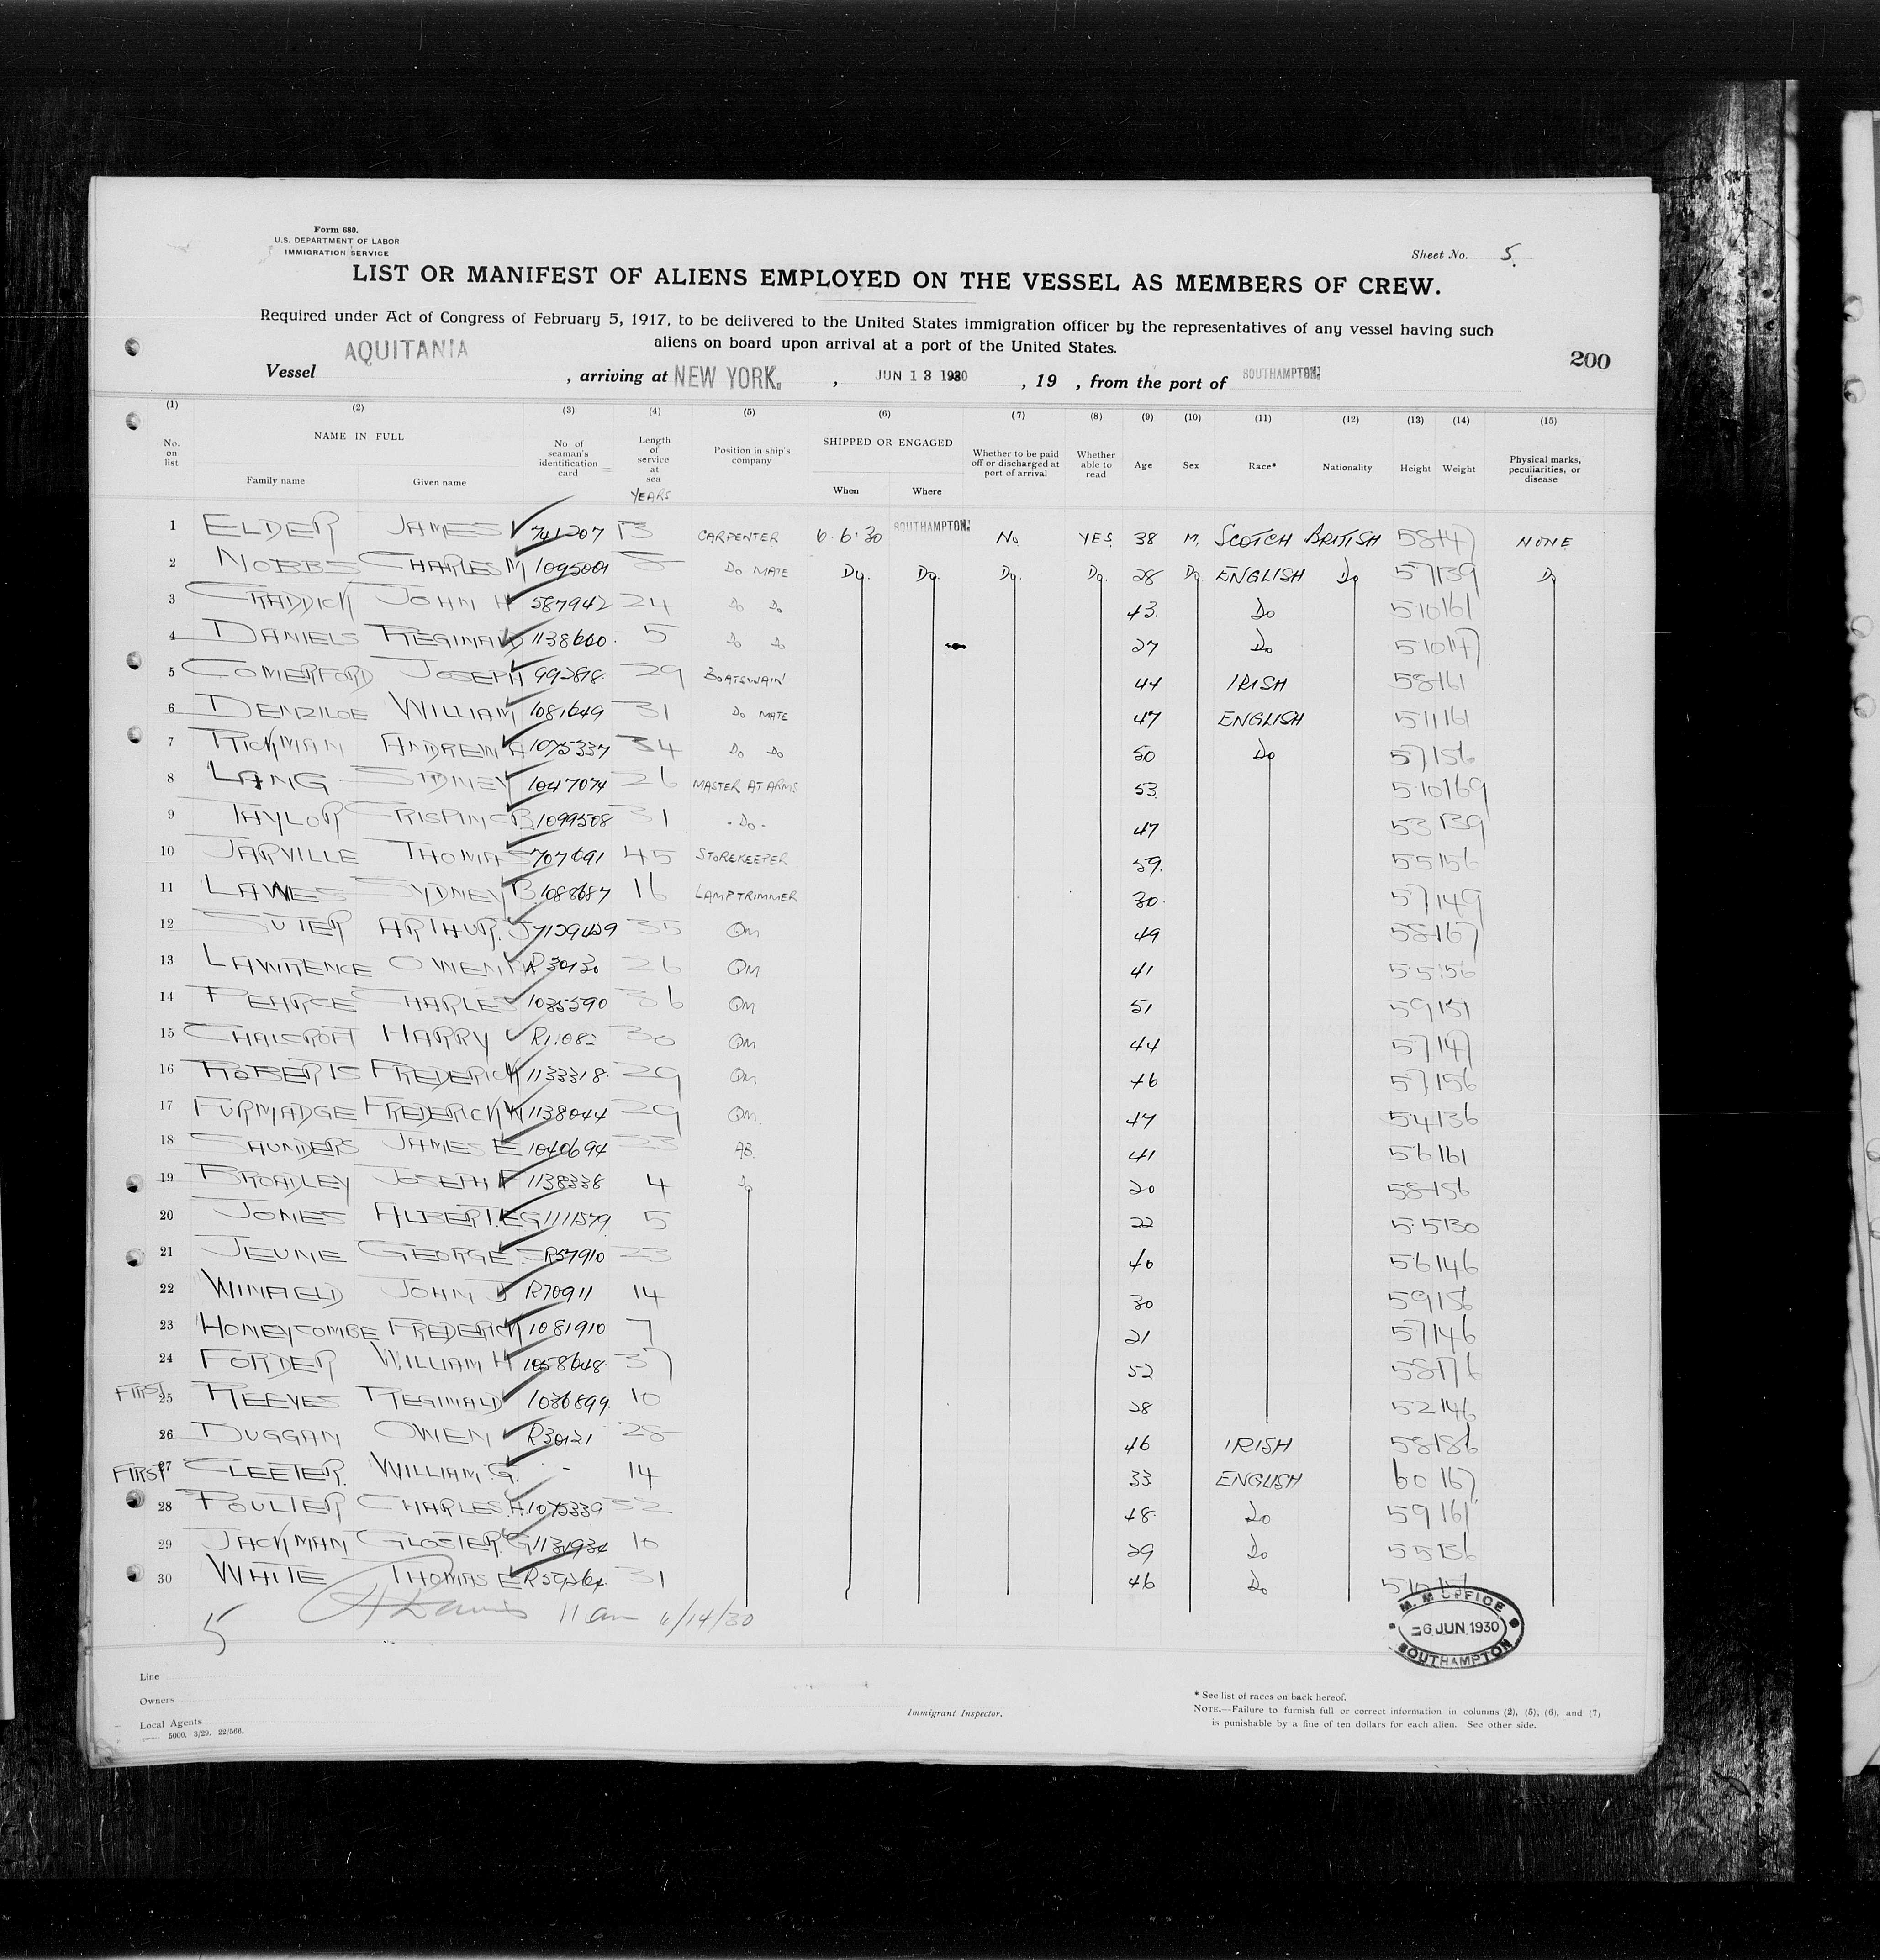 Form 680.
U.S. DEPARTMENT OF LABOR
IMMIGRATION SERVICE
Sheet No. 5.
LIST OR MANIFEST OF ALIENS EMPLOYED ON THE VESSEL AS MEMBERS OF CREW.
Required under Act of Congress of February 5, 1917, to be delivered to the United States immigration officer by the representatives of any vessel having such
aliens on board upon arrival at a port of the United States.
200
Vessel AQUITANIA , arriving at NEW YORK. , JUN 13 1930 , 19 , from the port of SOUTHAMPTON.
(1) (2) (3) (4) (5) (6) (7) (8) (9) (10) (11) (12) (13) (14) (15)
No. on list NAME IN FULL Family name Given name No. of seaman's identification card Length of service at sea YEARS Position in ship's company SHIPPED OR ENGAGED When Where Whether to be paid off or discharged at port of arrival Whether able to read Age Sex Race* Nationality Height Weight Physical marks, peculiarities, or disease
1 ELDER JAMES 741207 13 CARPENTER 6.6.30 SOUTHAMPTON. No YES. 38 M. SCOTCH BRITISH 58 147 NONE
2 NOBBS CHARLES M 1095001 Do MATE Do. Do. Do. Do. 28 Do. ENGLISH Do 57 139 Do
3 CRADDICK JOHN H 587942 24 Do Do 43. Do 510 161
4 DANIELS REGINALD 1138660. 5 Do Do 27 Do 510 147
5 COMERFORD JOSEPH 992818. 29 BOATSWAIN 44 IRISH 58 161
6 DENZILOE WILLIAM 1081649 31 Do MATE 47 ENGLISH 511 161
7 RICKMAN ANDREW A 1075337 34 Do Do 50 Do 57 156
8 LANG SIDNEY 1047074 26 MASTER AT ARMS 53. 510 169
9 TAYLOR CRISPIN C B. 1099508 31 -Do- 47 53 139
10 JARVILLE THOMAS 707691 45 STOREKEEPER 59. 55 156
11 LAWES SYDNEY B. 1088687 16 LAMPTRIMMER 30. 57 149
12 SUTER ARTHUR. J 35 QM 49 58 167
13 LAWRENCE OWEN R30130 26 QM 41 55 156
14 PEARCE CHARLES 1035590 36 QM 51 59 151
15 CHALCROFT HARRY 30 QM 44 57 147
16 ROBERTS FREDERICK 1133318. 29 QM 46 57 156
17 FURMADGE FREDERICK W 1138044 29 QM. 47 54 136
18 SAUNDERS JAMES E 1040694 33 AB. 41 56 161
19 BROADLEY JOSEPH F 1138338 4 Do 20 58 156
20 JONES ALBERT. E G 1111579 5 22 5.5 130
21 JEUNE GEORGE R57910 23 40 56 146
22 WINFIELD JOHN J R70911 14 30 59 156
23 HONEYCOMBE FREDERICK 1081910 7 21 57 146
24 FORDER WILLIAM H 1058648. 37 52 58 176
FIRST 25 REEVES REGINALD 1080899. 10 28 52 146
26 DUGGAN OWEN R30121 28 46 IRISH 58 186
FIRST 27 CLEETER. WILLIAM. G. - 14 33 ENGLISH 60 167
28 POULTER CHARLES. A. 1075339 32 48. Do 59 161
29 JACKMAN GLOSTER. G 1131934 10 29 Do 55 136
30 WHITE THOMAS E 31 46 Do
5 11 am 6/14/30
M. M OFFICE
6 JUN 1930
SOUTHAMPTON
Line
Owners
Local Agents
5000. 3/29. 22/566.
Immigrant Inspector.
* See list of races on back hereof.
NOTE.—Failure to furnish full or correct information in columns (2), (5), (6), and (7)
is punishable by a fine of ten dollars for each alien. See other side.